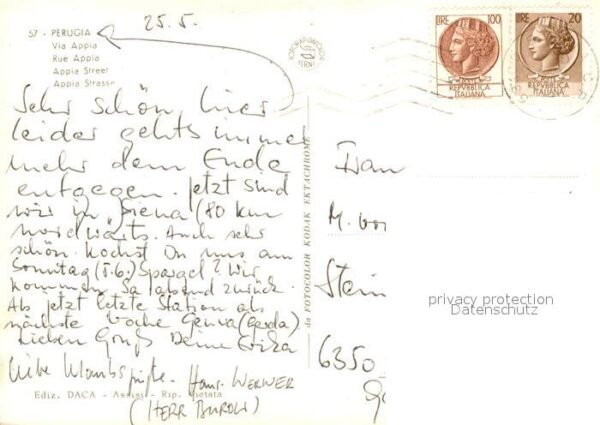 25.5.
57 - PERUGIA
Via Appia
Rue Appia
Appia Street
Appia Strasse
BOROMAR-DACIODOR
TERNI
LIRE 100
POSTE
REPVBBLICA
ITALIANA
LIRE 20
POSTE
REPVBBLICA
ITALIANA
Sehr schön hier
leider gehts immer
mehr dem Ende
entgegen. Jetzt sind
wir in Siena (80 km
nordwärts. Auch sehr
schön. Kochst Du uns am
Sonntag (5.6.) Spargel? Wir
kommen Sa abend zurück.
Ab jetzt letzte Station ab
nächste Woche Genua (Gerda).
Lieben Gruß Deine Erika
Liebe Urlaubsgrüße. Hans-WERNER
(HERR BUROW)
Ediz. DACA - Assisi - Rip. Vietata
da FOTOCOLOR KODAK EKTACHROME
Frau
M. von
Stein
6350
privacy protection
Datenschutz